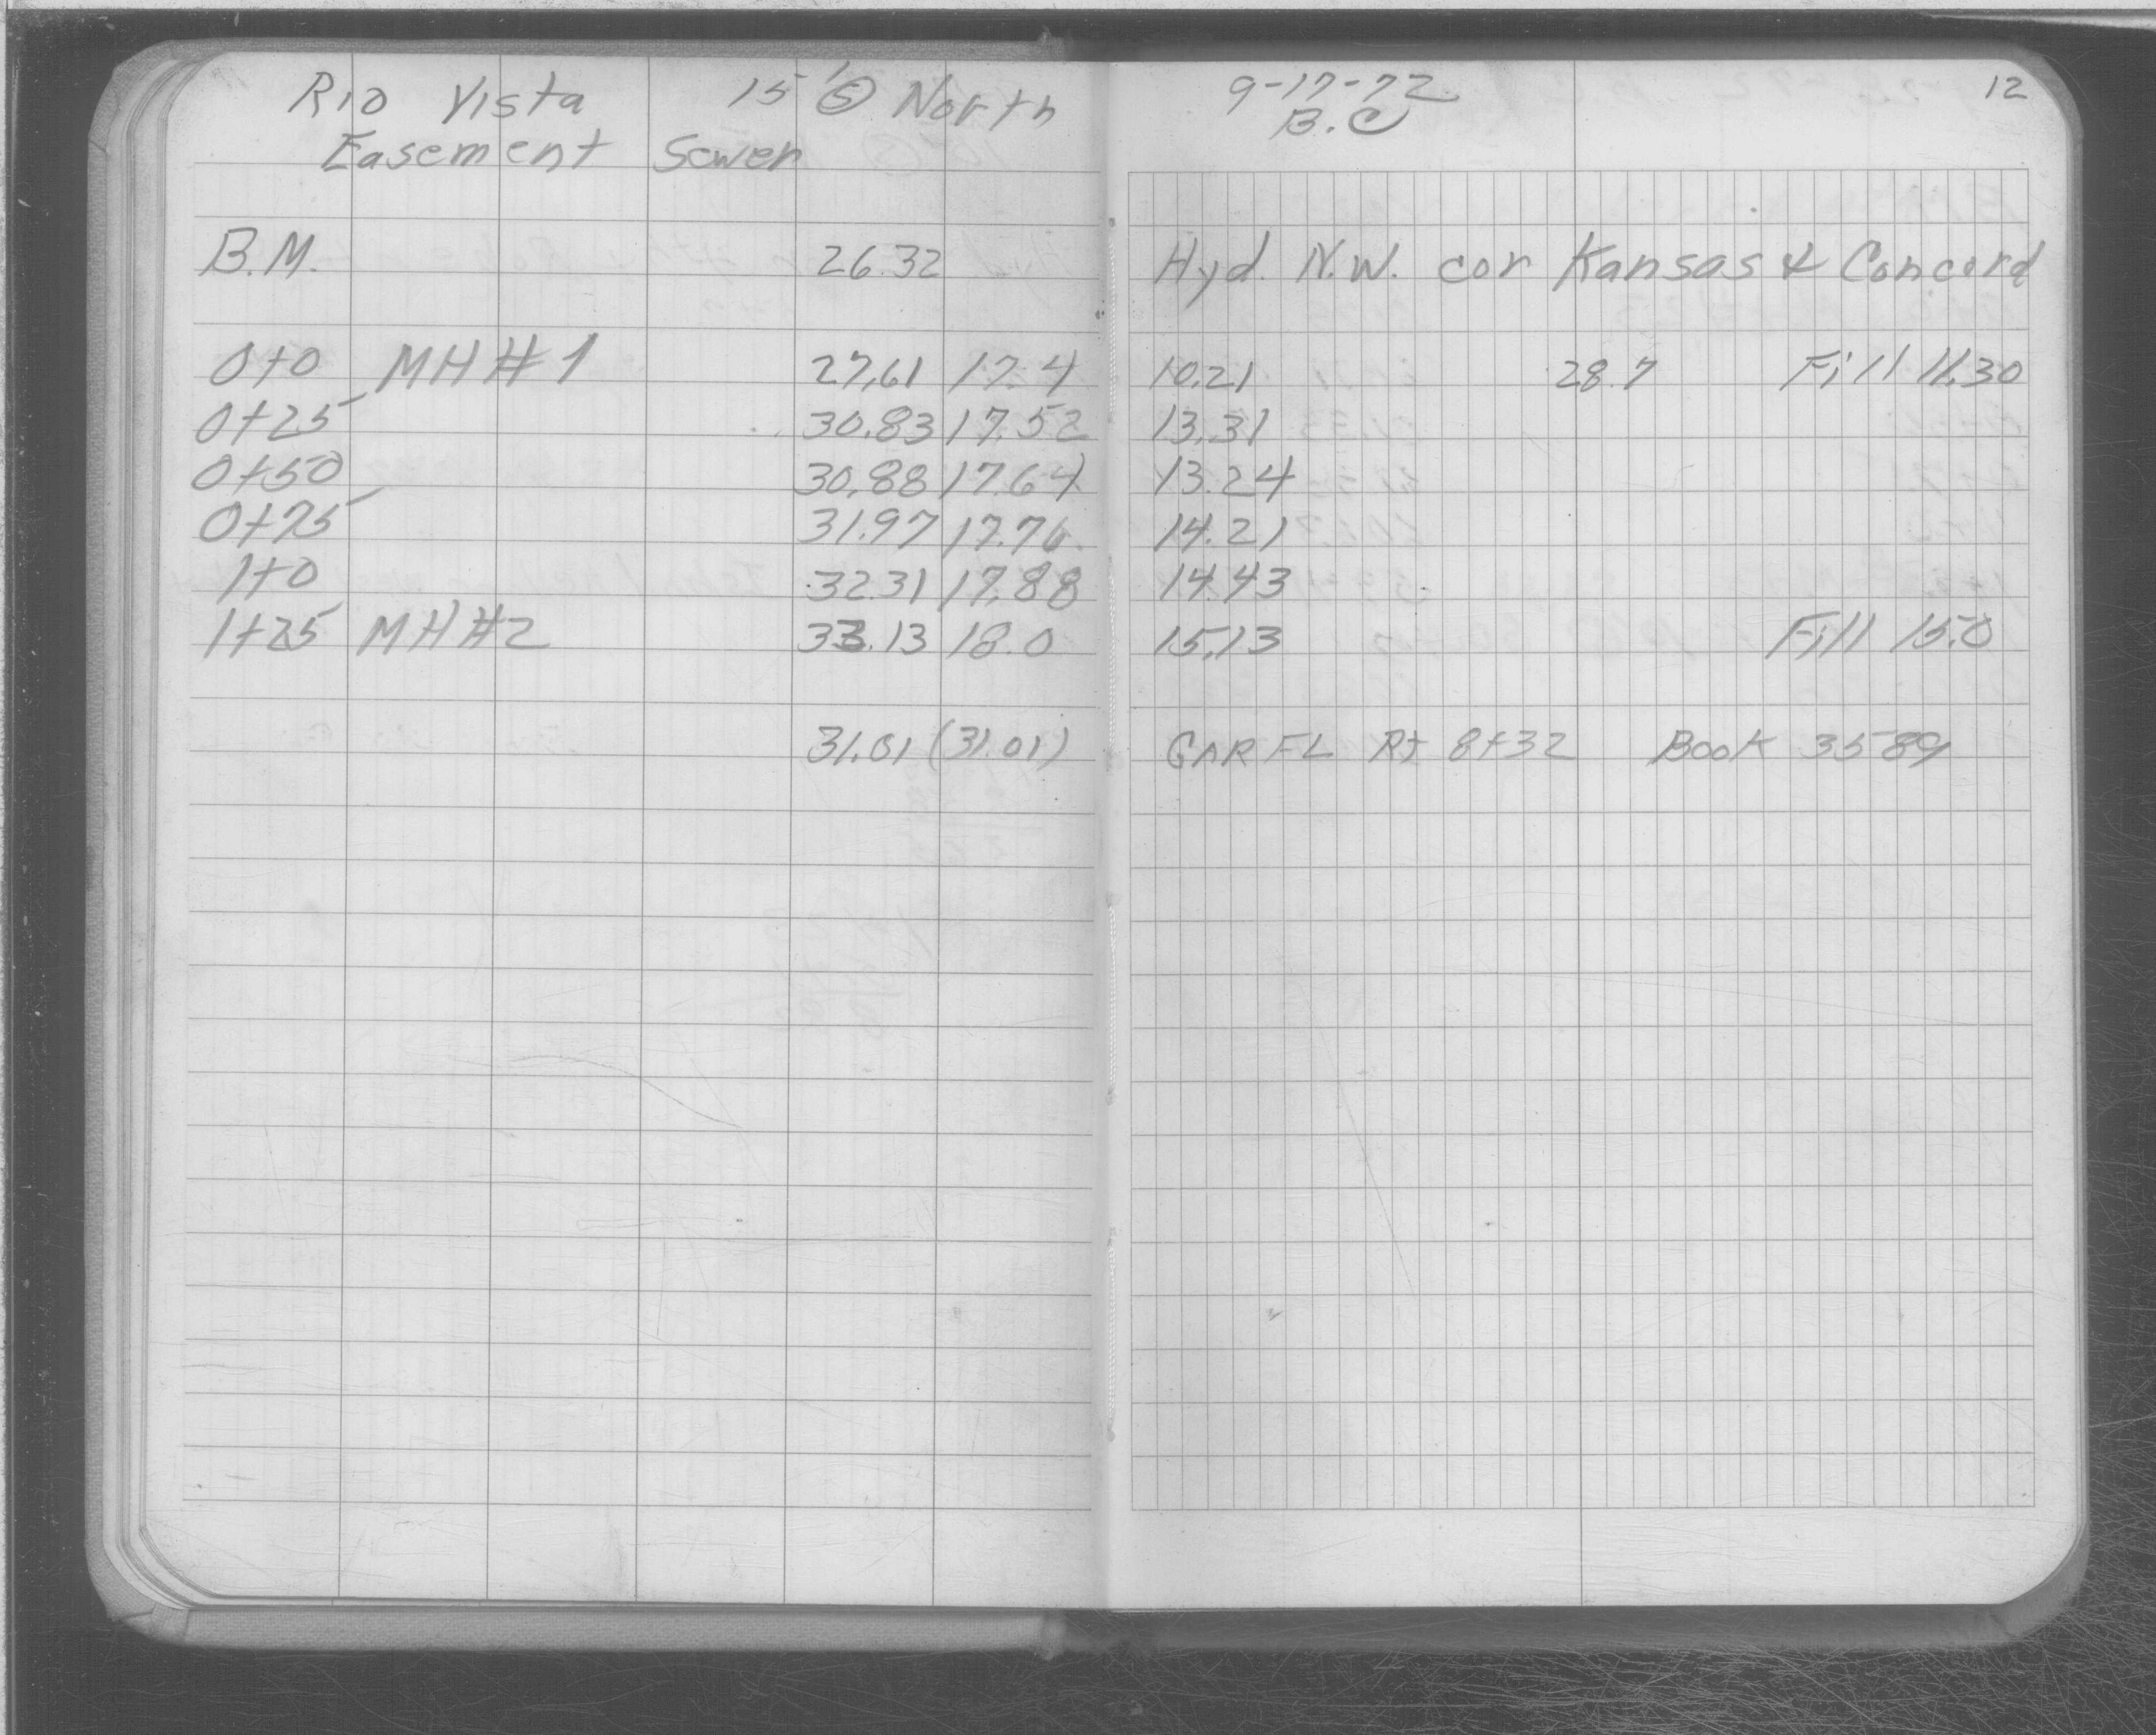 Rio Vista 15' Ⓢ North
Easement Sewer
9-17-72
B.C
12
B.M. 26.32 Hyd. N.W. cor Kansas & Concord
0+0 MH#1 27.61 17.4 10.21 28.7 Fill 11.30
0+25 30.83 17.52 13.31
0+50 30.88 17.64 13.24
0+75 31.97 17.76 14.21
1+0 32.31 17.88 14.43
1+25 MH#2 33.13 18.0 15.13 Fill 15.0
31.01 (31.01) GAR FL Rt 8+32 Book 3589